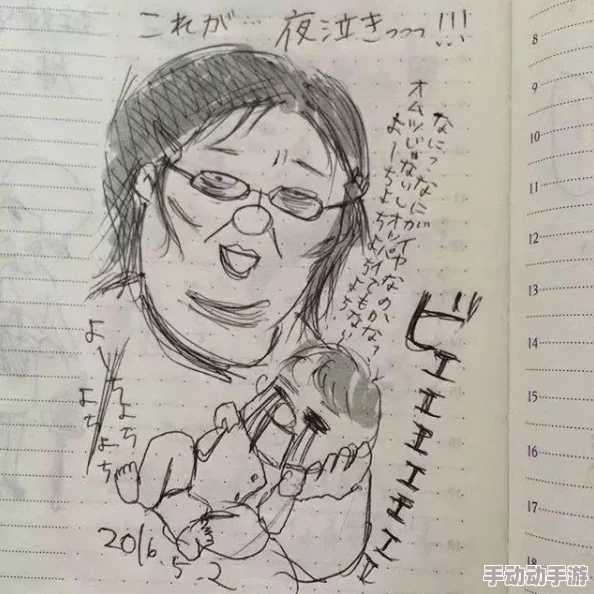 これが… 夜泣きっっっ!!!
なにっなにがイヤなのかなっ
オムツじゃないしオッパイでもない
よーちよちよち
ビエエエエエエエエ
よーちよち
よちよち
2016.5.2
8
9
10
11
12
13
14
15
16
17
18
手动动手游